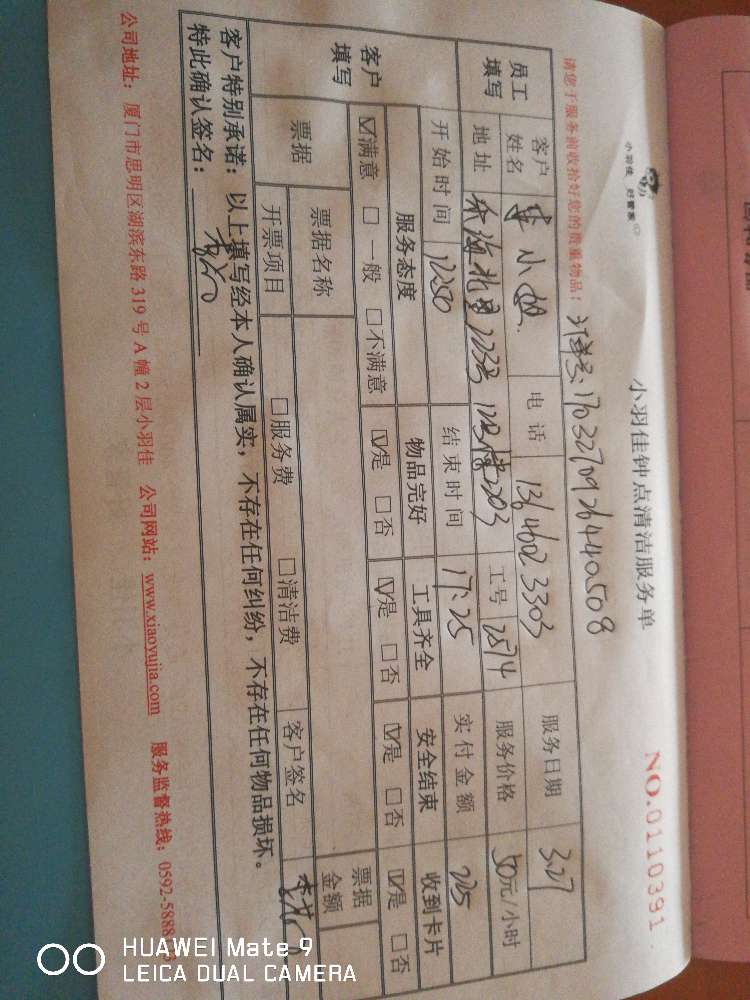 小羽佳 好管家
小羽佳钟点清洁服务单
NO.0110391
请您于服务前收拾好您的贵重物品!
订单号:17032709264440508
员工填写 客户姓名 小姐 电话 13646023303 服务日期 3.27
地址 海北里 1203 工号 2514 服务价格 50元/小时
开始时间 1250 结束时间 17:25 实付金额 225
客户填写 服务态度 物品完好 工具齐全 安全结束 收到卡片
☑满意 □一般 □不满意 ☑是 □否 ☑是 □否 ☑是 □否 ☑是 □否
票据 票据名称 票据金额
开票项目 □服务费 □清洁费 客户签名
客户特别承诺:以上填写经本人确认属实,不存在任何纠纷,不存在任何物品损坏。
特此确认签名:
公司地址:厦门市思明区湖滨东路319号A幢2层小羽佳 公司网站:www.xiaoyujia.com 服务监督热线:0592-5888
HUAWEI Mate 9
LEICA DUAL CAMERA